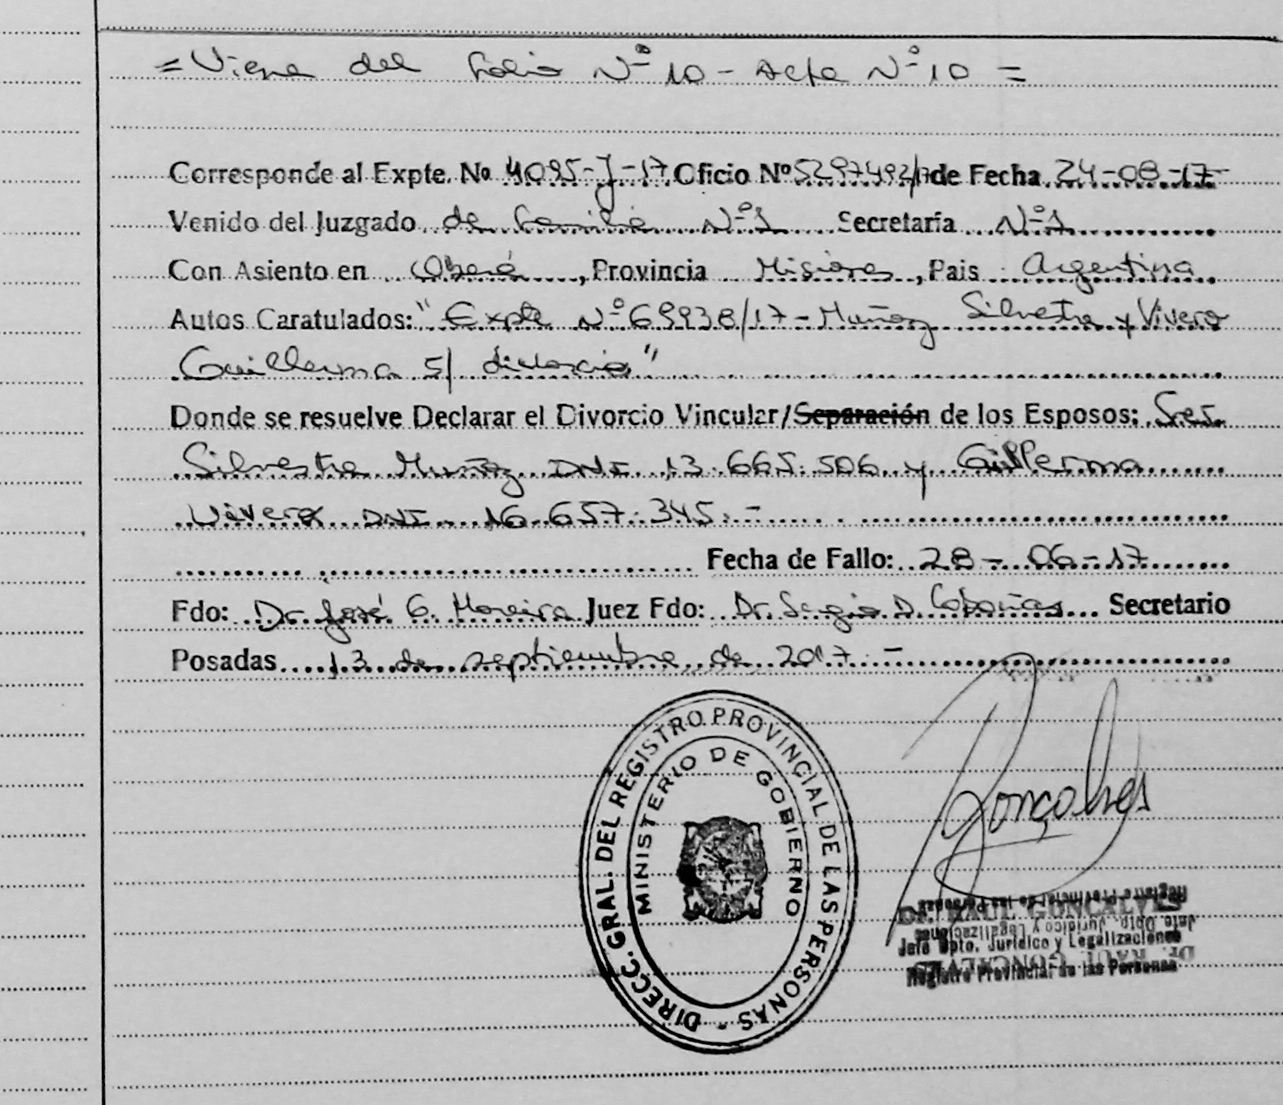 = Viene del folio Nº 10 - Acta Nº 10 =
Corresponde al Expte. Nº 4095-J-17 Oficio Nº 5297492/17 de Fecha 24-08-17-
Venido del Juzgado de Familia Nº1 Secretaría Nº1
Con Asiento en Oberá, Provincia Misiones, Pais Argentina
Autos Caratulados: "Expte Nº 69938/17 - Muñoz Silvestre y Vivero
Guillerma s/ divorcio"
Donde se resuelve Declarar el Divorcio Vincular/Separación de los Esposos: Sres.
Silvestre Muñoz DNI 13.665.506 y Guillerma
Vivero DNI 16.657.345.-
Fecha de Fallo: 28-06-17
Fdo: Dr. José G. Moreira Juez Fdo: Dr. Sergio D. Secretario
Posadas 13 de septiembre de 2017.-
DIRECC. GRAL. DEL REGISTRO PROVINCIAL DE LAS PERSONAS -
MINISTERIO DE GOBIERNO
Gonçalves
Dr. RAUL GONCALVES
Jefe Dpto. Jurídico y Legalizaciones
Registro Provincial de las Personas